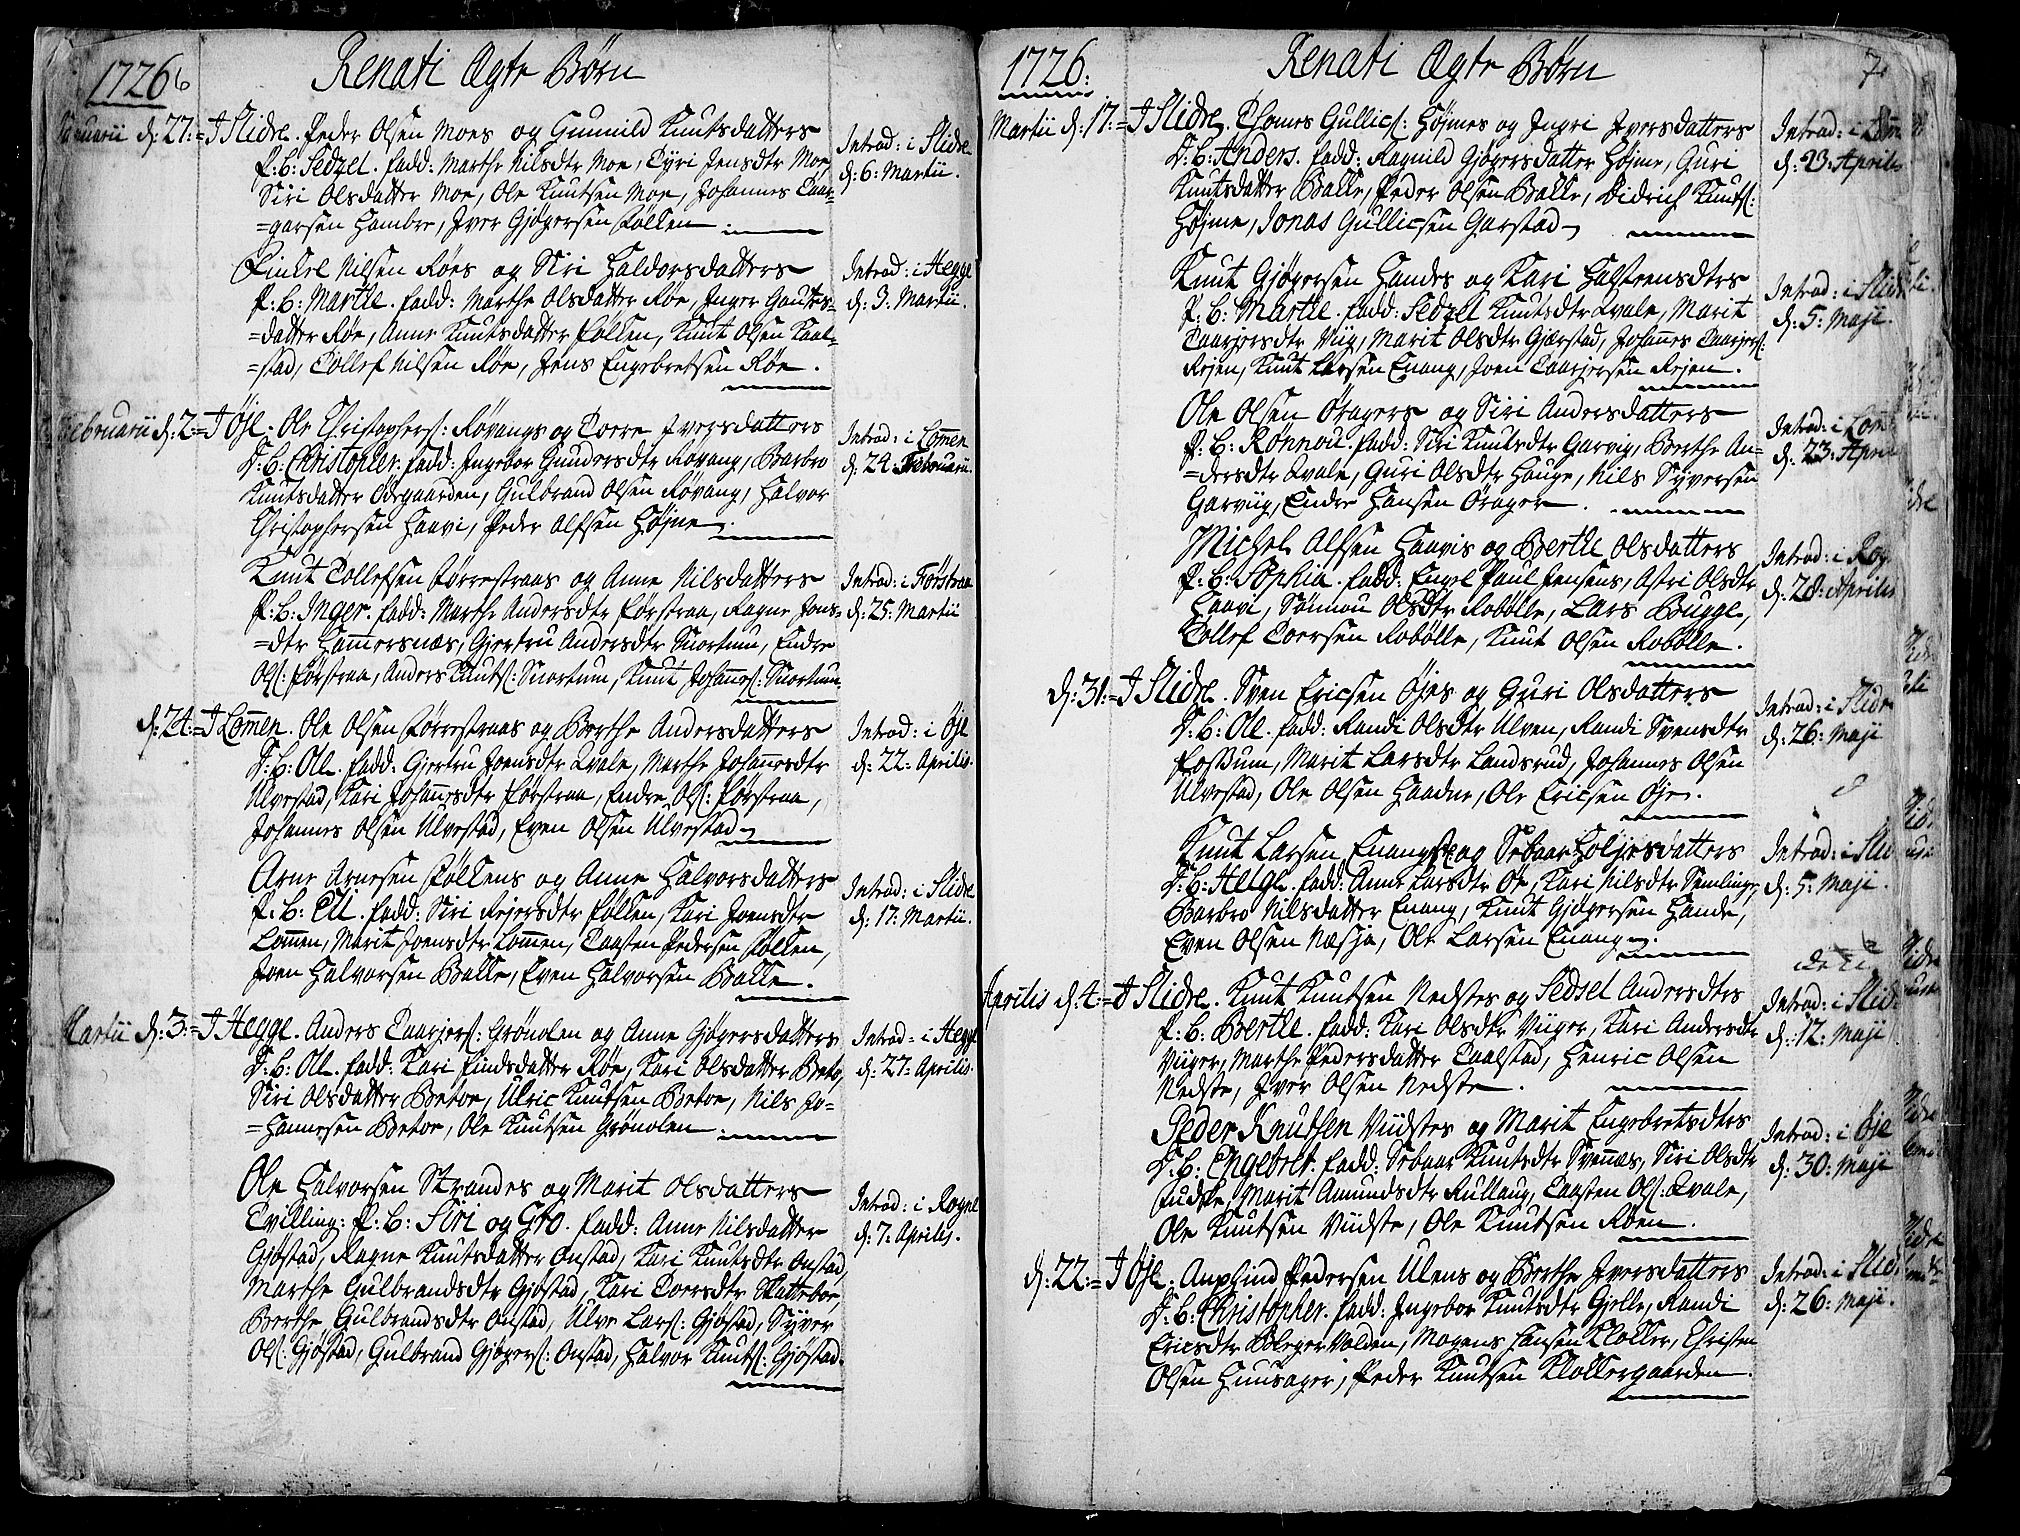 1726
6
Renati Ægte Børn
Januarii d: 27:= I Slidre. Peder Olsen Moes og Gunnild Knutsdatters
P. B: Sedzel. fadd: Marthe Nilsdtr Moe, Tÿri Jensdtr Moe,
Siri Olsdatter Moe, Ole Knutsen Moe, Johannes Taar-
=garsen Hambre, Iver Gjøgersen Folken
Introd: i Slidre
d: 6: Martii.
Finkel Nilsen Røes og Siri Haldorsdatters
P. B: Marthe. fadd: Marthe Olsdatter Røe, Inger Gautes-
=datter Røe, Anne Knutsdatter Folken, Knut Olsen Kaal-
=stad, Tollef Nilsen Røe, Jens Engebretsen Røe.
Introd: i Hegge
d: 3: Martii.
Februarii d: 2:= I Øjl. Ole Christophers: Røvangs og Toere Iversdatters
D: B: Christopher. fadd: Ingebor Gundersdtr Røvang, Barbro
Knutsdatter Ødegaarden, Gulbrand Olsen Røvang, Halvor
Christophersen Haavi, Peder Alfsen Højne.
Introd: i Lomen
d: 24: Februarii.
Knut Tollefsen Førrestraas og Anne Nilsdatters
P. B: Inger. fadd: Marthe Andersdtr Førstraa, Ragne Jons-
=dtr Hamersnæs, Gjertru Andersdtr Snortum, Endre
Ols: Førstraa, Anders Knuts: Snortum, Knut Johannes: Snortum
Introd: i Førstraa
d: 25: Martii
d: 24:= I Lomen. Ole Olsen Førrestraas og Berthe Andersdatters
D: B: Ole. fadd: Gjertru Joensdtr Qvale, Marthe Johannesdtr
Ulvestad, Kari Johannesdtr Førstraa, Endre Ols: Førstraa,
Johannes Olsen Ulvestad, Even Olsen Ulvestad
Introd: i Øjl
d: 22: Aprilis.
Arne Arnesen Folkens og Anne Halvorsdatters
P. B: Eli. fadd: Siri Rejersdtr Folken, Kari Joensdtr
Lomen, Marit Joensdtr Lomen, Taasten Pedersen Folken,
Joen Halvorsen Balke, Even Halvorsen Balke.
Introd: i Slidre
d: 17: Martii.
Martii d: 3:= I Hegge. Anders Taarjers: Grønolen og Anne Gjøgersdatters
D: B: Ole. fadd: Kari Findsdatter Røe, Kari Olsdatter Beto,
Siri Olsdatter Betoe, Ulric Knutsen Betoe, Nils Jo-
=hannesen Betoe, Ole Knutsen Grønolen
Introd: i Hegge
d: 27: Aprilis.
Ole Halvorsen Strandes og Marit Olsdatters
Tvilling: P: B: Siri og Gro. fadd: Anne Nilsdatter
Gjøstad, Ragne Knutsdatter Onstad, Kari Knutsdtr Onstad,
Marthe Gulbrandsdtr Gjøstad, Kari Toersdtr Skattebøe,
Berthe Gulbrandsdtr Onstad, Ulve Lars: Gjøstad, Syver
Ols: Gjøstad, Gulbrand Gjøgers: Onstad, Halvor Knuts: Gjøstad.
Introd: i Rogne
d: 7: Aprilis.
1726:
Renati Ægte Børn
7
Martii d: 17:= I Slidre. Thomes Gullics: Højmes og Ingri Iversdatters
D: B: Anders. fadd: Ragnild Gjøgersdatter Højme, Guri
Knutsdatter Balke, Peder Olsen Balke, Didrich Knuts:
Højme, Jonas Gullicsen Garstad
Introd: i Lome
d: 23: Aprilis
Knut Gjøgersen Handes og Kari Halstensdtrs
P. B: Marthe. fadd: Sedzel Knutsdtr Qvale, Marit
Taarjersdtr Viig, Marit Olsdtr Gjærstad, Johannes Taarjers:
Rejen, Knut Larsen Enang, Joen Taarjersen Rejen.
Introd: i Slidr
d: 5: Maji.
Ole Olsen Oragers og Siri Andersdatters
P. B: Rønnou. fadd: Siri Knutsdtr Garvig, Berthe An-
=dersdtr Qvale, Guri Olsdtr Hauge, Nils Syversen
Garviig, Endre Hansen Orager.
Introd: i Lom
d: 23: April
Michel Alfsen Haavis og Berthe Olsdatters
P. B: Sophia. fadd: Engel Paul Jensens, Astri Olsdtr
Haavi, Sønnou Olsdtr Robølle, Lars Brugge,
Tollef Toersen Robølle, Knut Olsen Robølle.
Introd: i Rog
d: 28: Aprilis
d: 31:= I Slidre. Sven Ericsen Øjes og Guri Olsdatters
D: B: Ole. fadd: Randi Olsdtr Ulven, Randi Svensdtr
Fossum, Marit Larsdtr Landsrud, Johannes Olsen
Ulvestad, Ole Olsen Haadne, Ole Ericsen Øje.
Introd: i Slidr
d: 26: Maji
Knut Larsen Enangs og Sebaar Holjesdatters
D: B: Helge. fadd: Anne Larsdtr Oe, Kari Nilsdtr Semlinge,
Barbro Nilsdatter Enang, Knut Gjøgersen Hande,
Even Olsen Næsja, Ole Larsen Enang.
Introd: i Sli
d: 5: Maji.
Aprilis d: 4:= I Slidre. Knut Knutsen Nedstes og Sedsel Andersdtrs
P. B: Berthe. fadd: Kari Olsdtr Viiger, Kari Andersdtr
Viiger, Marthe Pedersdatter Taalstad, Henric Olsen
Nedste, Iver Olsen Nedste.
Introd: i Slid:
d: 12: Maji
Peder Knutsen Viidstes og Marit Engebretsdtrs
D: B: Engebret. fadd: Sebaar Knutsdtr Svennæs, Siri Olsdtr
Kudske, Marit Amundsdtr Rullang, Taasten Ols: Qvale,
Ole Knutsen Viidste, Ole Knutsen Røen.
Introd: i Øjl
d: 30: Maji
d: 22:= I Øjl. Anphind Pedersen Ulens og Berthe Iversdatters
D: B: Christopher. fadd: Ingebor Knutsdtr Gjelle, Randi
Ericsdtr Bleger Volden, Mogens Hansen Klokker, Christen
Olsen Huusager, Peder Knutsen Klokkergaarden.
Introd: i Slid
d: 26: Maji.